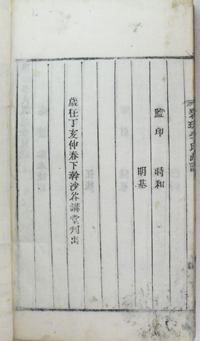 監印 時和
明基
歲在丁亥仲春下澣沙谷講堂刊出